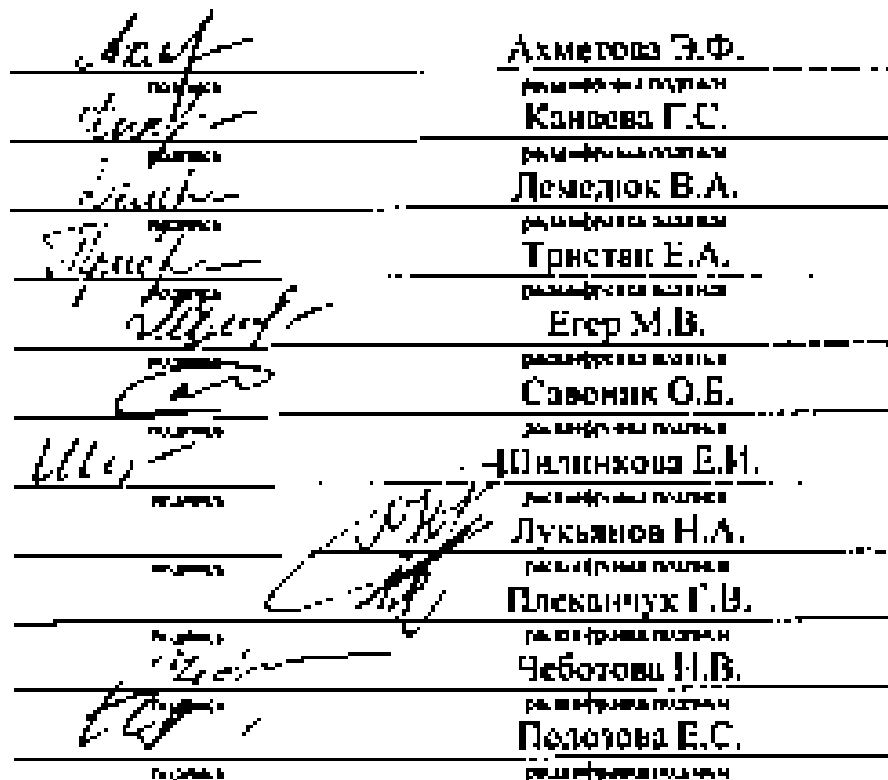 Ахметова Э.Ф.
подпись расшифровка подписи
Канаева Г.С.
подпись расшифровка подписи
Демедюк В.А.
подпись расшифровка подписи
Тристан Е.А.
подпись расшифровка подписи
Егер М.В.
подпись расшифровка подписи
Савоник О.Б.
подпись расшифровка подписи
Шилинхова Е.И.
подпись расшифровка подписи
Лукьянов Н.А.
подпись расшифровка подписи
Плеканчук Г.В.
подпись расшифровка подписи
Чеботова Н.В.
подпись расшифровка подписи
Полотова Е.С.
подпись расшифровка подписи